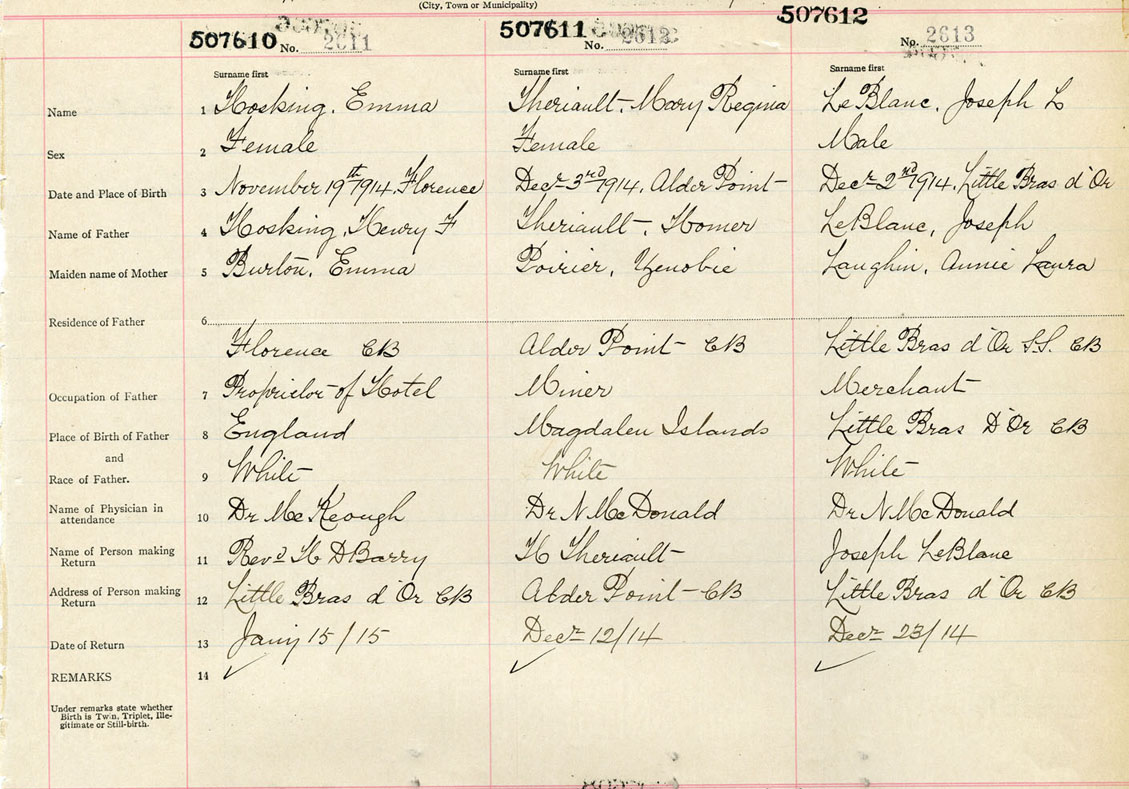 (City, Town or Municipality)
507610 No. 2611 507611 No. 2612 507612 No. 2613
Surname first Surname first Surname first
Name 1 Hosking, Emma Theriault, Mary Regina LeBlanc, Joseph L
Sex 2 Female Female Male
Date and Place of Birth 3 November 19th 1914, Florence Decr 3rd 1914, Alder Point Decr 2nd 1914, Little Bras d'Or
Name of Father 4 Hosking, Henry F Theriault, Homer LeBlanc, Joseph
Maiden name of Mother 5 Burton, Emma Poirier, Zenobie Laughin, Annie Laura
Residence of Father 6
Florence CB Alder Point CB Little Bras d'Or S.S. CB
Occupation of Father 7 Proprietor of Hotel Miner Merchant
Place of Birth of Father 8 England Magdalen Islands Little Bras D'Or CB
and
Race of Father. 9 White White White
Name of Physician in attendance 10 Dr McKeough Dr N McDonald Dr N McDonald
Name of Person making Return 11 Revd H D Barry H Theriault Joseph LeBlanc
Address of Person making Return 12 Little Bras d'Or CB Alder Point CB Little Bras d'Or CB
Date of Return 13 Jany 15/15 Decr 12/14 Decr 23/14
REMARKS 14 ✓ ✓ ✓
Under remarks state whether
Birth is Twin, Triplet, Ille-
gitimate or Still-birth.